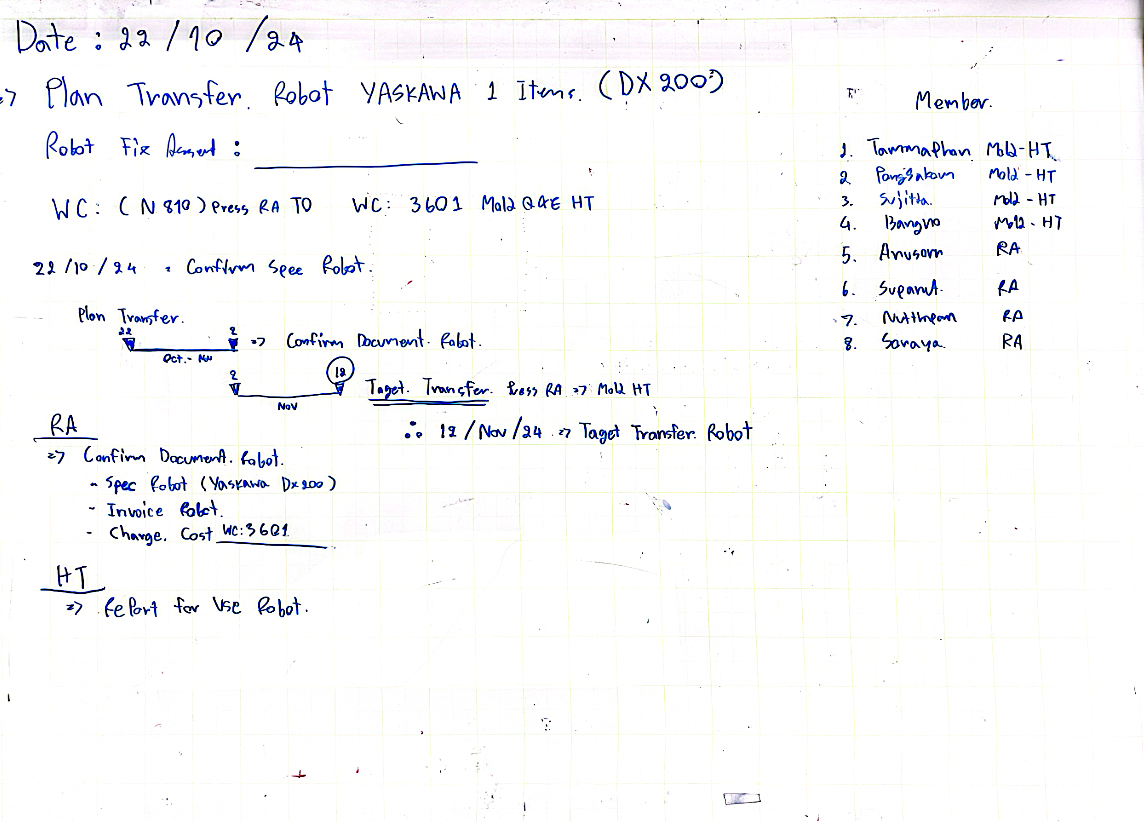 Date : 22 / 10 / 24
=> Plan Transfer. Robot YASKAWA 1 Items. (DX 200)
Robot Fix Asset :
WC: (N 810) Press RA TO WC: 3601 Mold Q&E HT
22 /10 / 24 • Confirm Spec Robot.
Plan Transfer.
22 2 => Confirm Document. Robot.
Oct.- Nov
2 12 Taget. Transfer. Press RA => Mold HT
Nov
∴ 12 / Nov / 24 => Taget Transfer. Robot
RA
=> Confirm Document. Robot.
- Spec Robot (Yaskawa Dx 200)
- Invoice Robot.
- Charge. Cost WC: 3601
HT
=> RePort for Use Robot.
Member.
1. Tammaphan Mold-HT
2 Mold - HT
3. Sujitta. Mold - HT
4. Mold - HT
5. Anusorn RA
6. Suparut. RA
7. RA
8. Soraya. RA